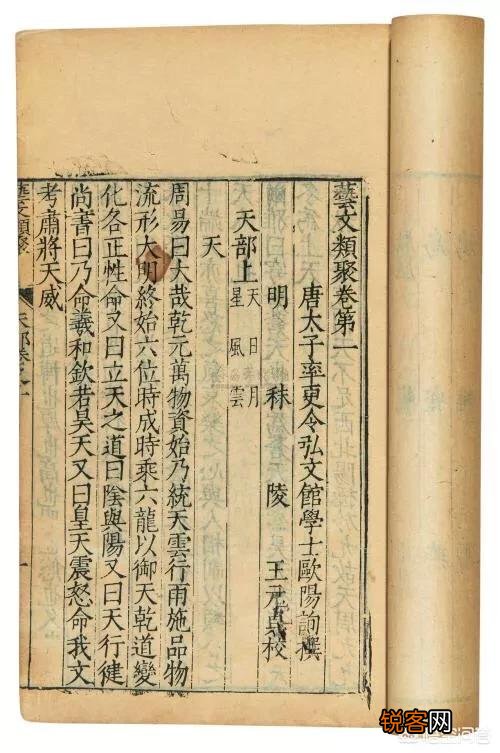 藝文類聚卷第一
唐太子率更令弘文館學士歐陽詢撰
明 秣陵 王元貞校
天部上 天 日 月
星 風 雲
天
周易曰大哉乾元萬物資始乃統天雲行雨施品物
流形大明終始六位時成時乘六龍以御天乾道變
化各正性命又曰立天之道曰陰與陽又曰天行健
尚書曰乃命羲和欽若昊天又曰皇天震怒命我文
考肅將天威
藝文類聚 天部卷之一 一
锐客网